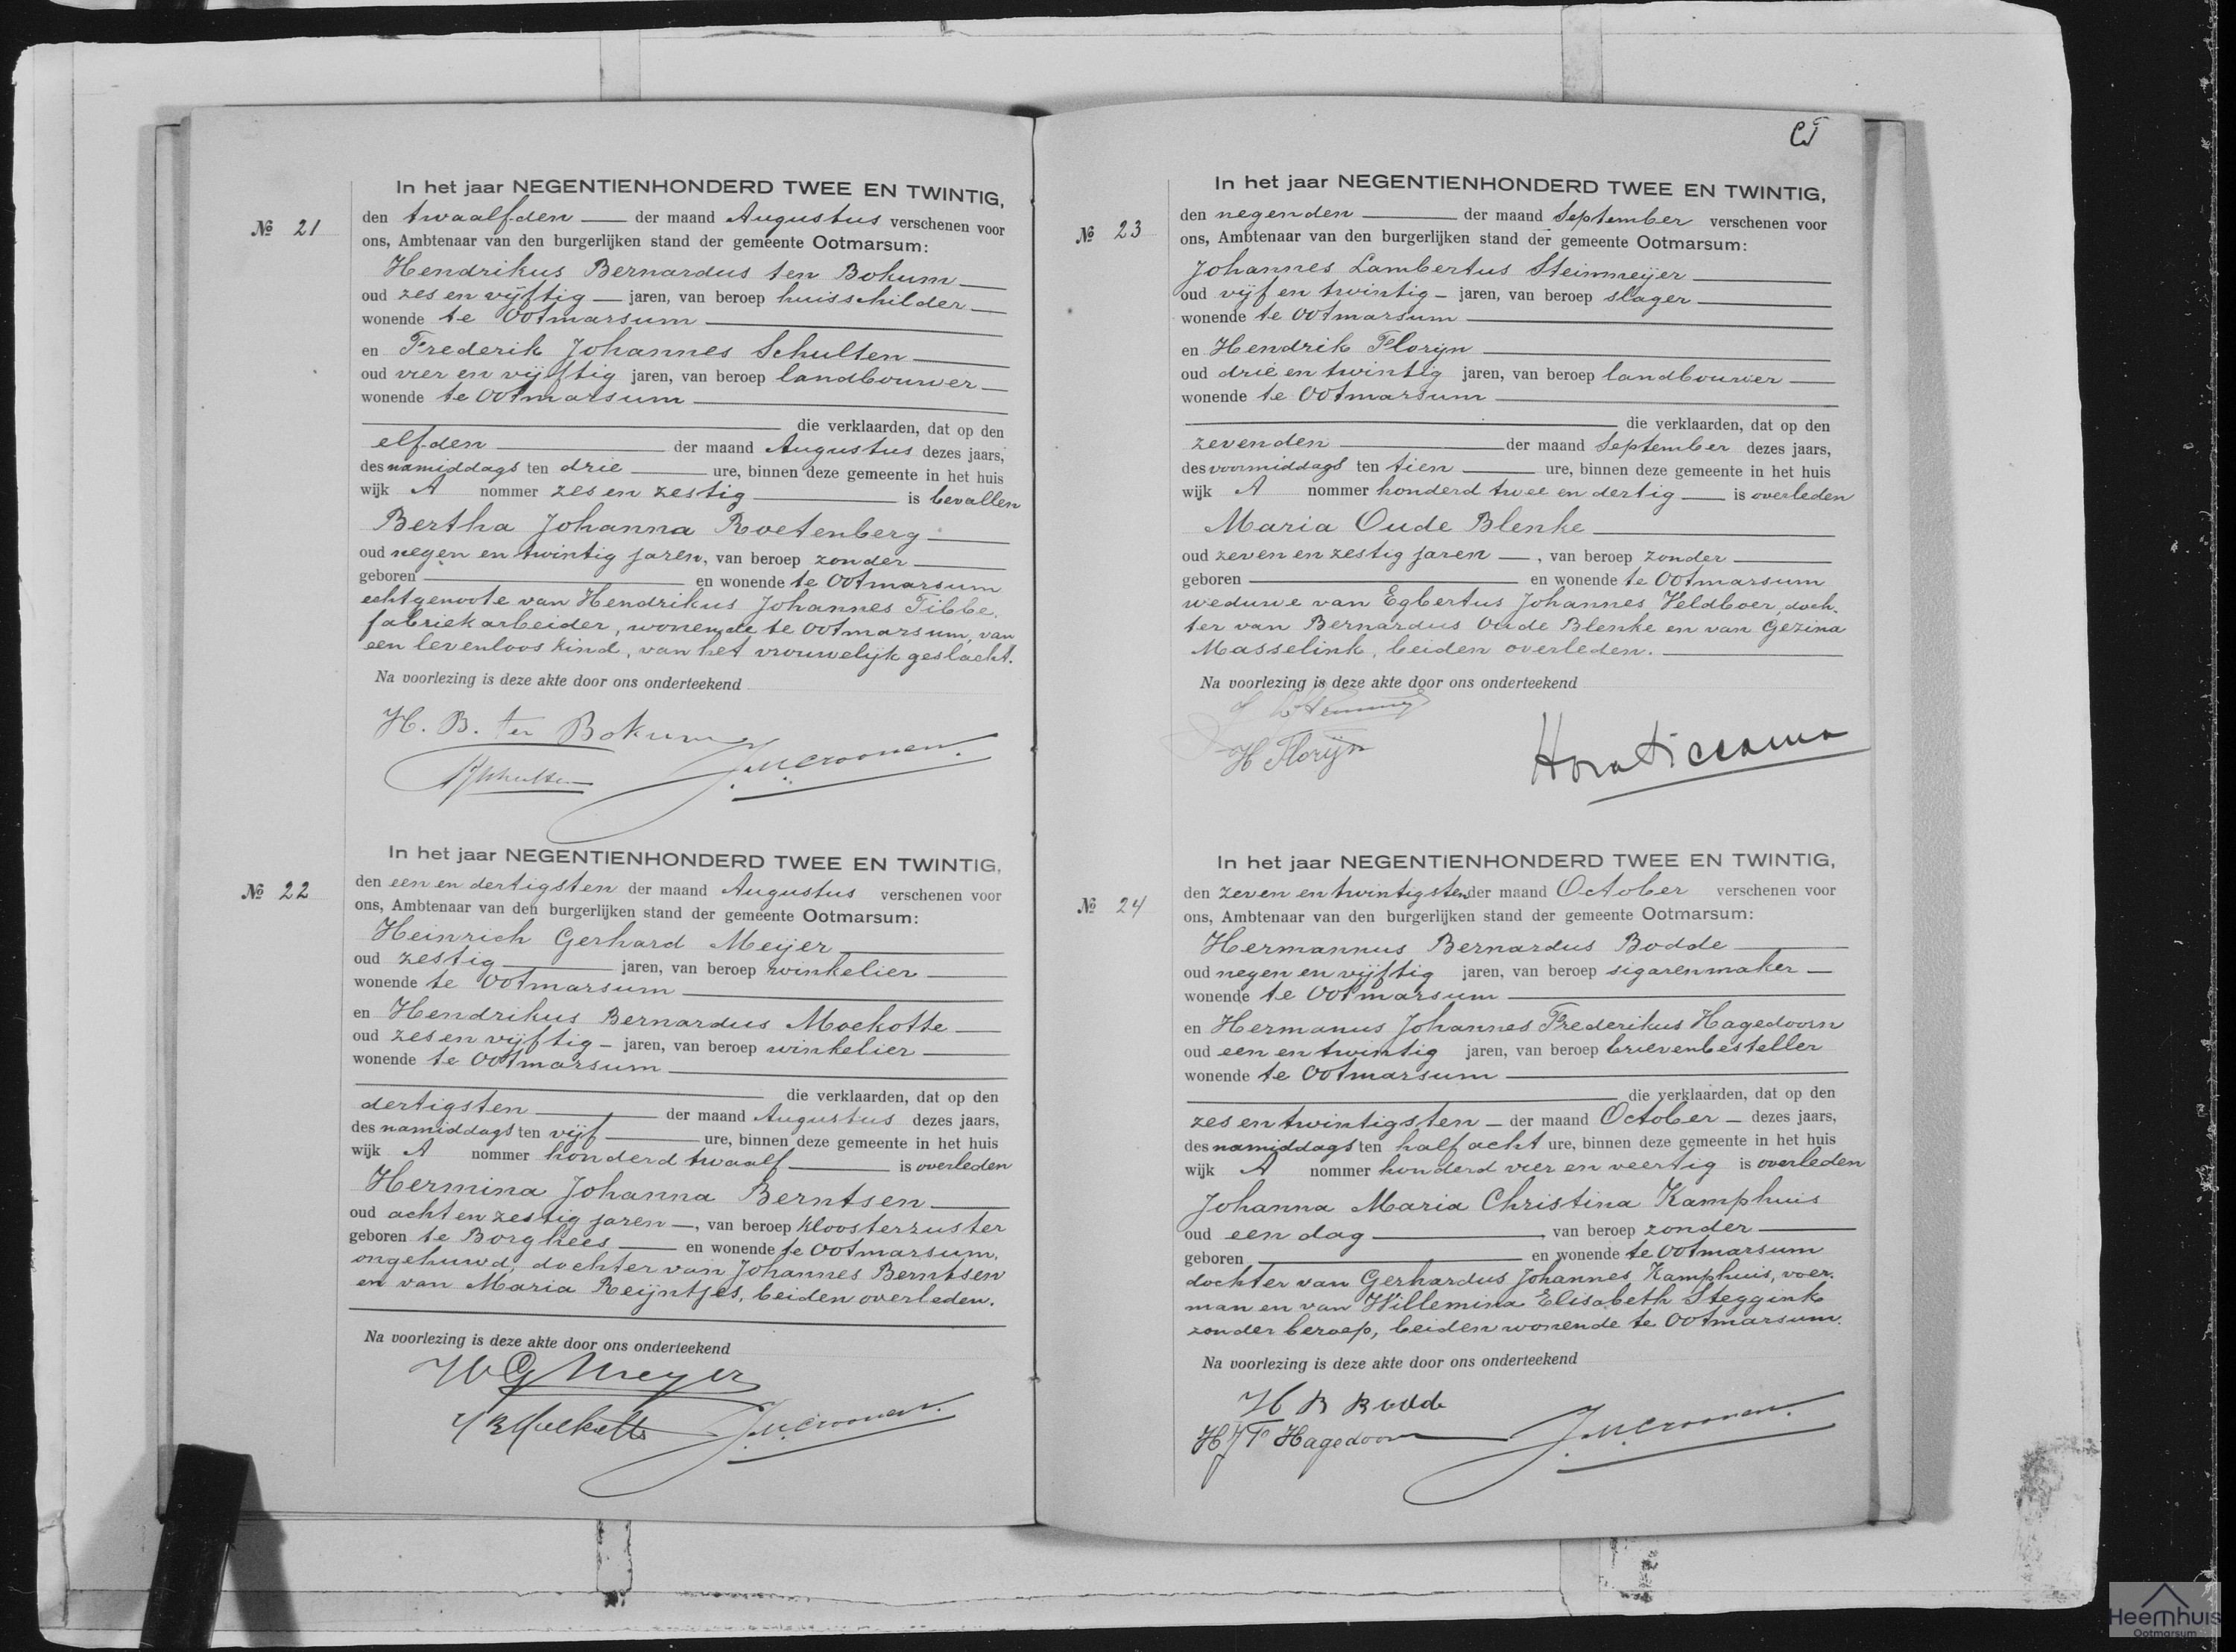 In het jaar NEGENTIENHONDERD TWEE EN TWINTIG,
№ 21
den twaalfden der maand Augustus verschenen voor
ons, Ambtenaar van den burgerlijken stand der gemeente Ootmarsum:
Hendrikus Bernardus ten Bokum
oud zes en vijftig jaren, van beroep huisschilder
wonende te Ootmarsum
en Frederik Johannes Schulten
oud vier en vijftig jaren, van beroep landbouwer
wonende te Ootmarsum
die verklaarden, dat op den
elfden der maand Augustus dezes jaars,
des namiddags ten drie ure, binnen deze gemeente in het huis
wijk A nommer zes en zestig is bevallen
Bertha Johanna Roetenberg
oud negen en twintig jaren, van beroep zonder
geboren en wonende te Ootmarsum
echtgenoote van Hendrikus Johannes Tibbe,
fabriekarbeider, wonende te Ootmarsum, van
een levenloos kind, van het vrouwelijk geslacht.
Na voorlezing is deze akte door ons onderteekend
H. B. ten Bokum
FJSchulten
In het jaar NEGENTIENHONDERD TWEE EN TWINTIG,
№ 22
den een en dertigsten der maand Augustus verschenen voor
ons, Ambtenaar van den burgerlijken stand der gemeente Ootmarsum:
Heinrich Gerhard Meijer
oud zestig jaren, van beroep winkelier
wonende te Ootmarsum
en Hendrikus Bernardus Moekotte
oud zes en vijftig jaren, van beroep winkelier
wonende te Ootmarsum
die verklaarden, dat op den
dertigsten der maand Augustus dezes jaars,
des namiddags ten vijf ure, binnen deze gemeente in het huis
wijk A nommer honderd twaalf is overleden
Hermina Johanna Berntsen
oud acht en zestig jaren, van beroep kloosterzuster
geboren te Borghees en wonende te Ootmarsum,
ongehuwd, dochter van Johannes Berntsen
en van Maria Reijntjes, beiden overleden.
Na voorlezing is deze akte door ons onderteekend
HG Meyer
HBMoekotte
In het jaar NEGENTIENHONDERD TWEE EN TWINTIG,
№ 23
den negenden der maand September verschenen voor
ons, Ambtenaar van den burgerlijken stand der gemeente Ootmarsum:
Johannes Lambertus Steinmeijer
oud vijf en twintig jaren, van beroep slager
wonende te Ootmarsum
en Hendrik Florijn
oud drie en twintig jaren, van beroep landbouwer
wonende te Ootmarsum
die verklaarden, dat op den
zevenden der maand September dezes jaars,
des voormiddags ten tien ure, binnen deze gemeente in het huis
wijk A nommer honderd twee en dertig is overleden
Maria Oude Blenke
oud zeven en zestig jaren, van beroep zonder
geboren en wonende te Ootmarsum
weduwe van Egbertus Johannes Veldboer, doch-
ter van Bernardus Oude Blenke en van Gezina
Masselink, beiden overleden.
Na voorlezing is deze akte door ons onderteekend
H Florijn
In het jaar NEGENTIENHONDERD TWEE EN TWINTIG,
№ 24
den zeven en twintigsten der maand October verschenen voor
ons, Ambtenaar van den burgerlijken stand der gemeente Ootmarsum:
Hermannus Bernardus Bodde
oud negen en vijftig jaren, van beroep sigarenmaker
wonende te Ootmarsum
en Hermanus Johannes Frederikus Hagedoorn
oud een en twintig jaren, van beroep brievenbesteller
wonende te Ootmarsum
die verklaarden, dat op den
zes en twintigsten der maand October dezes jaars,
des namiddags ten half acht ure, binnen deze gemeente in het huis
wijk A nommer honderd vier en veertig is overleden
Johanna Maria Christina Kamphuis
oud een dag, van beroep zonder
geboren en wonende te Ootmarsum
dochter van Gerhardus Johannes Kamphuis, voer-
man en van Willemina Elisabeth Steggink
zonder beroep, beiden wonende te Ootmarsum.
Na voorlezing is deze akte door ons onderteekend
H B Bodde
HJF Hagedoorn
Heemhuis
Ootmarsum